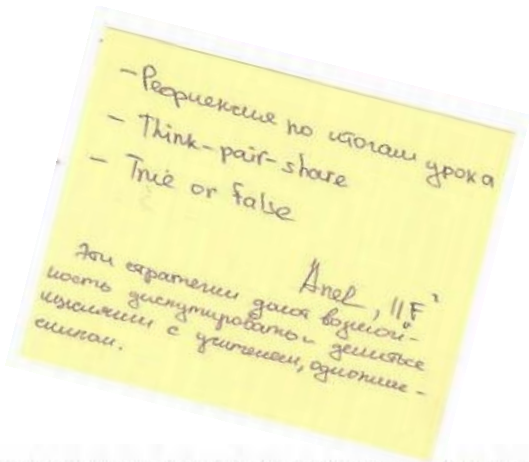 - Рефлексия по итогам урока
- Think-pair-share
- True or false
Anel, 11F
Эти стратегии дают возмож-
ность диспутировать и делиться
мыслями с учителем, одноклас-
сником.